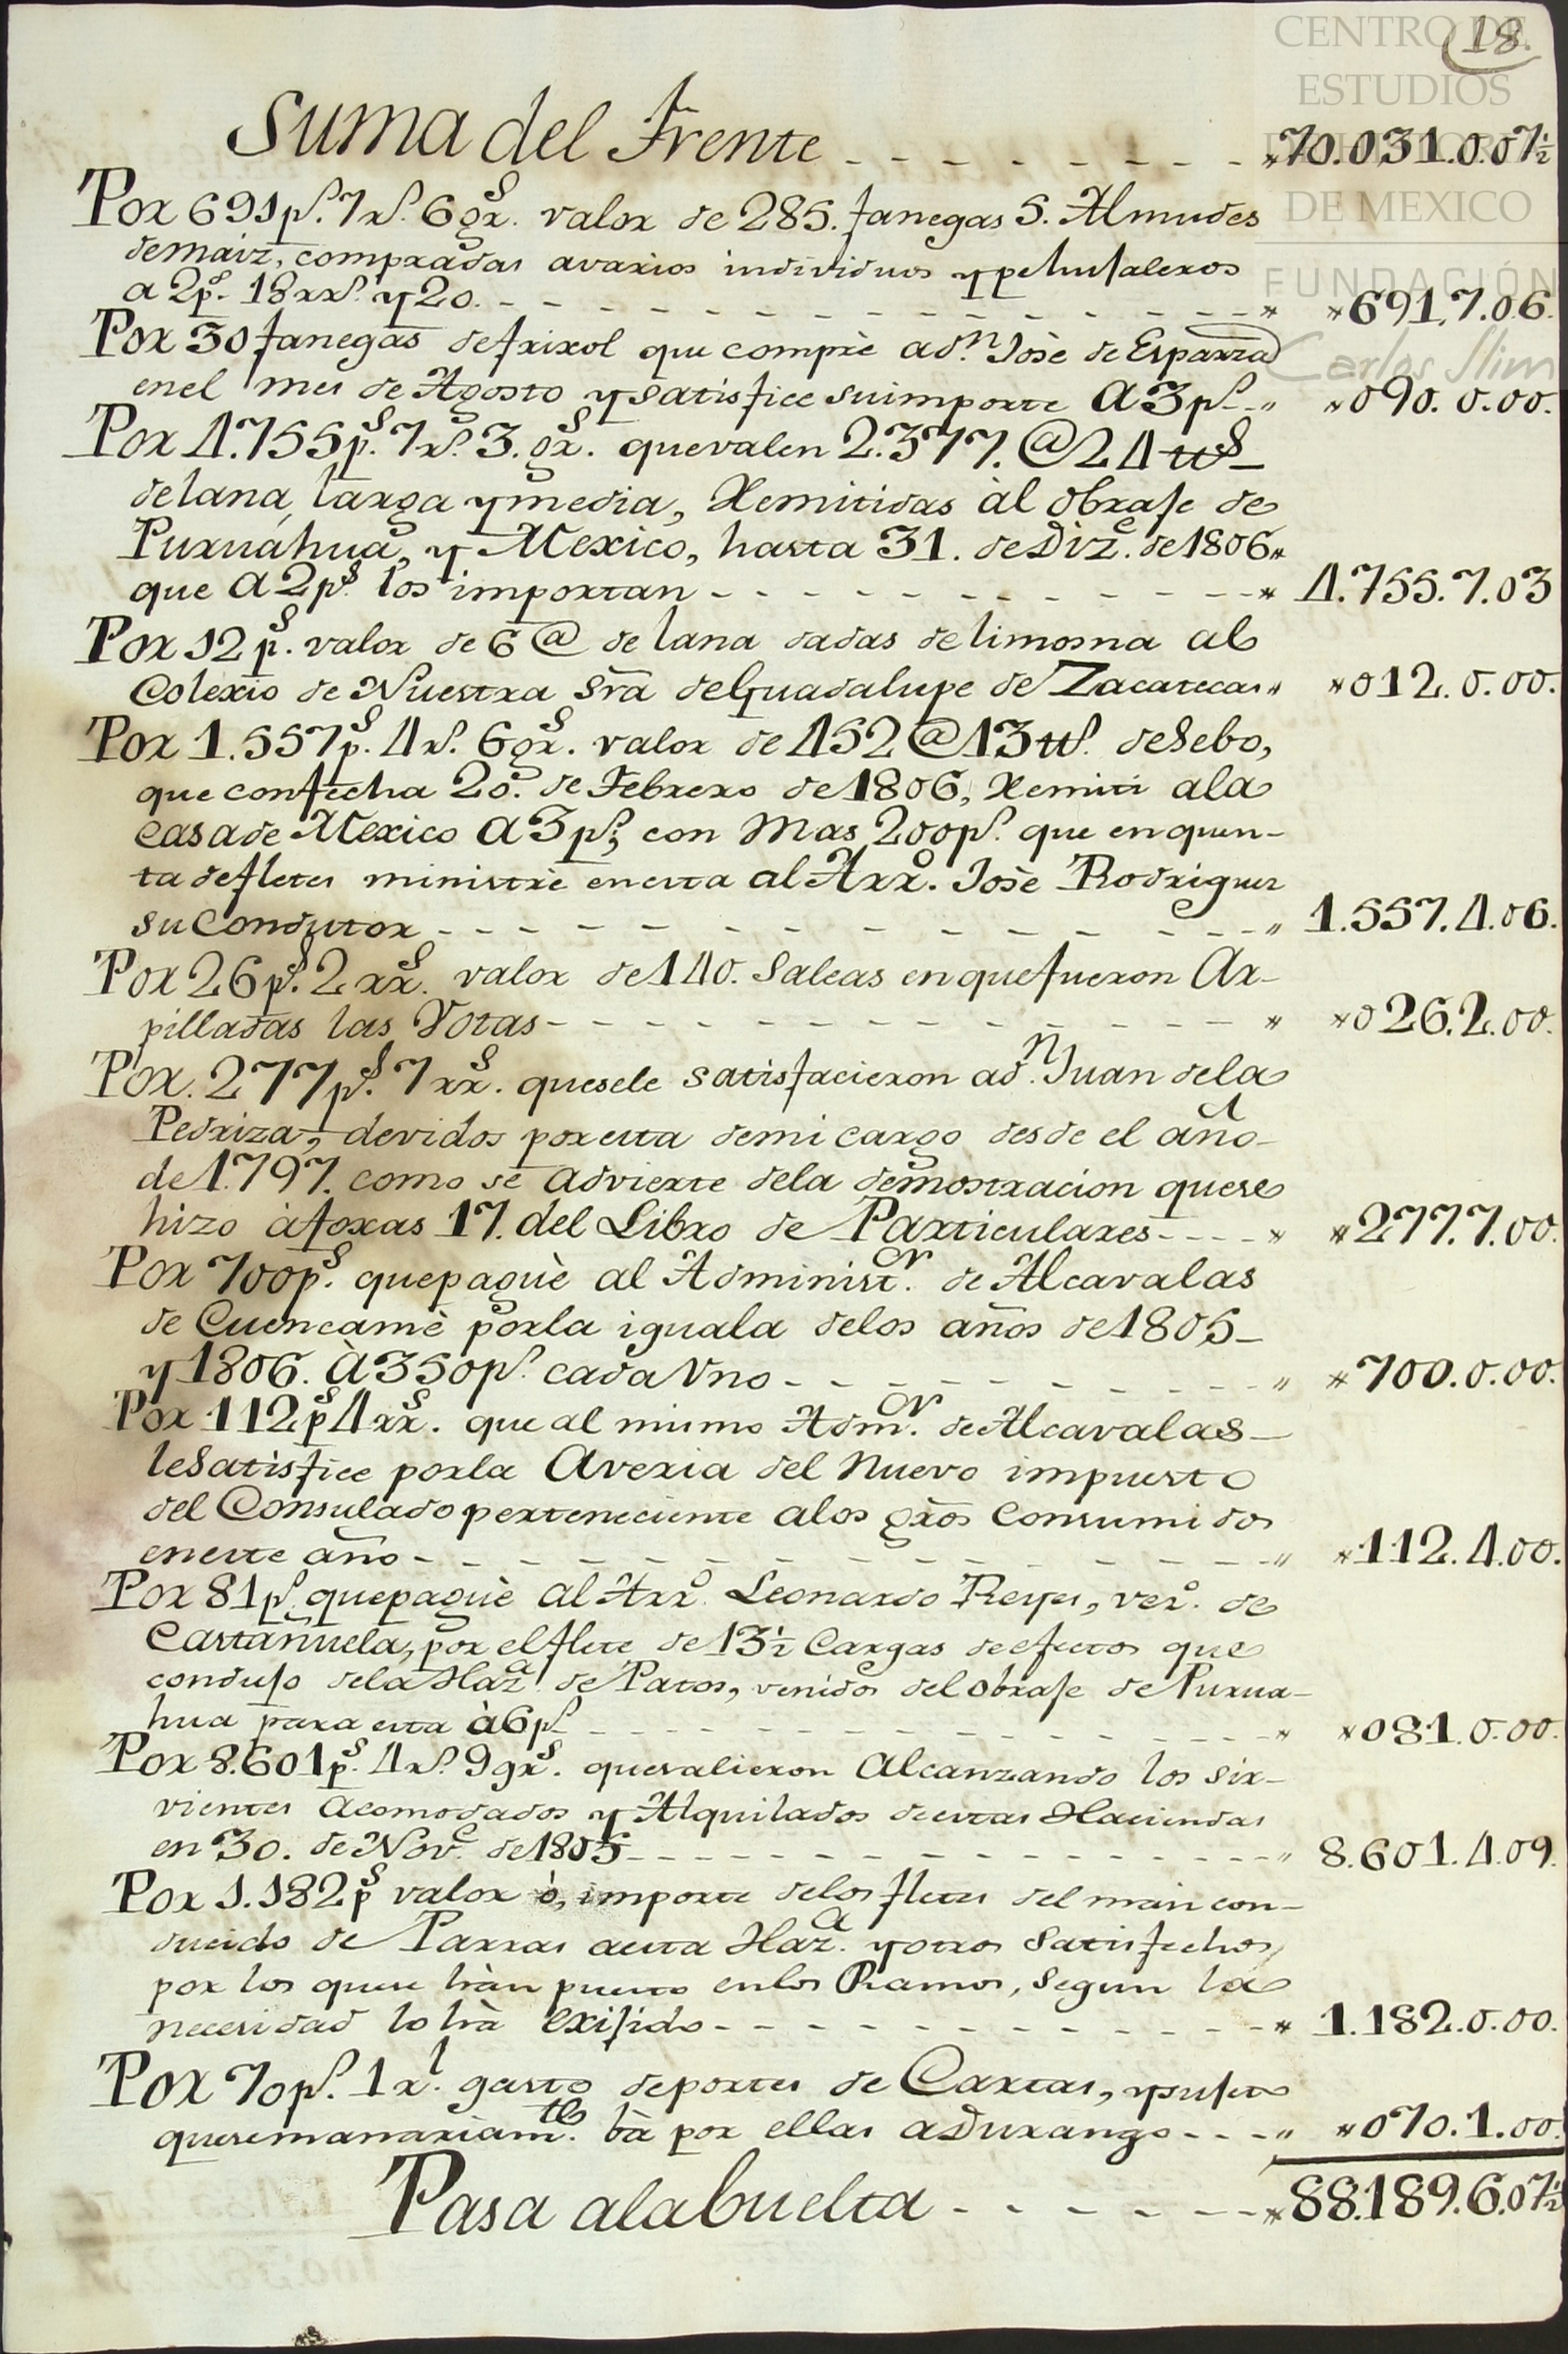 CENTRO DE
18.
ESTUDIOS
DE MEXICO
FUNDACIÓN
Carlos Slim
Suma del Frente - - - - - - - - - "70.031.0.07½
Por 691p.s 7r.s 6gr.s valor de 285. fanegas 5. Almudes
demaiz, compradas avarios individuos ypehujaleros
a 2p.s 18rr.s y 20. - - - - - - - - - - - - - " "691.7.06.
Por 30 fanegas defrixol que comprè ad.n Josè de Esparza
enel mes de Agosto ysatisfice suimporte a 3p.s - " "090.0.00.
Por 4.755p.s 7r.s 3.gr.s quevalen 2.377.@24 tt.s
delana, larga ymedia, Remitidas àl obraje de
Puruáhua, y Mexico, hasta 31. de Diz.e de 1806"
que a 2p.s los importan - - - - - - - - - - " 4.755.7.03
Por 12p.s valor de 6@ de lana dadas delimosna al
Colexio de Nuestra Sra deGuadalupe de Zacatecas" "012.0.00.
Por 1.557p.s 4r.s 6gr.s valor de 452@13tt.s deSebo,
que confecha 20. de Febrero de 1806, Remiti ala
casade Mexico a 3p.s, con Mas 200p.s que enquen-
ta defletes ministrè enesta al Arr.o Josè Rodriguez
suCondutor - - - - - - - - - - - - - " 1.557.4.06.
Por 26p.s 2rr.s valor de 140. Saleas enquefueron Ar-
pilladas las Votas - - - - - - - - - - - " "026.2.00.
Por. 277p.s 7rr.s quesele satisfacieron ad.n Juan dela
Pedriza, devidos poresta demi cargo desde el año
de 1.797. como se advierte dela demostracion quese
hizo àfoxas 17. del Libro de Particulares - - - - " "277.7.00.
Por 700p.s quepaguè al Administ.or de Alcavalas
de Cuencamè porla iguala delos años de 1805
y 1806. à 350p.s cada Vno - - - - - - - - - - " "700.0.00.
Por 112p.s 4rr.s que al mismo Adm.or de Alcavalas
leSatisfice porla Averia del Nuevo impuesto
del Consulado perteneciente alos gros Consumidos
eneste año - - - - - - - - - - - - - " "112.4.00.
Por 81p.s quepaguè al Arr.o Leonardo Reyes, vez.o de
Castañuela, por elflete de 13½ Cargas deefectos que
condujo dela Haz.a de Patos, venidos del obraje de Purua-
hua para esta à 6p.s - - - - - - - - - - - " "081.0.00.
Por 8.601p.s 4r.s 9gr.s quesalieron Alcanzando los sir-
vientes Acomodados y Alquilados deestas Haciendas
en 30. de Nov.e de 1805 - - - - - - - - - - - " 8.601.4.09.
Por 1.182p.s valor ò, importe delos fletes del mais con-
ducido de Parras aesta Haz.a yotros Satisfechos,
por los quese hàn puesto enlos Ramos, Segun la
necesidad lo hà exijido - - - - - - - - - - - " 1.182.0.00.
Por 70p.s 1r.l gasto deportes de Cartas, ysujeto
quesemanariam.te bà por ellas aDurango - - - " "070.1.00.
Pasa alabuelta - - - - - - "88.189.6.07½